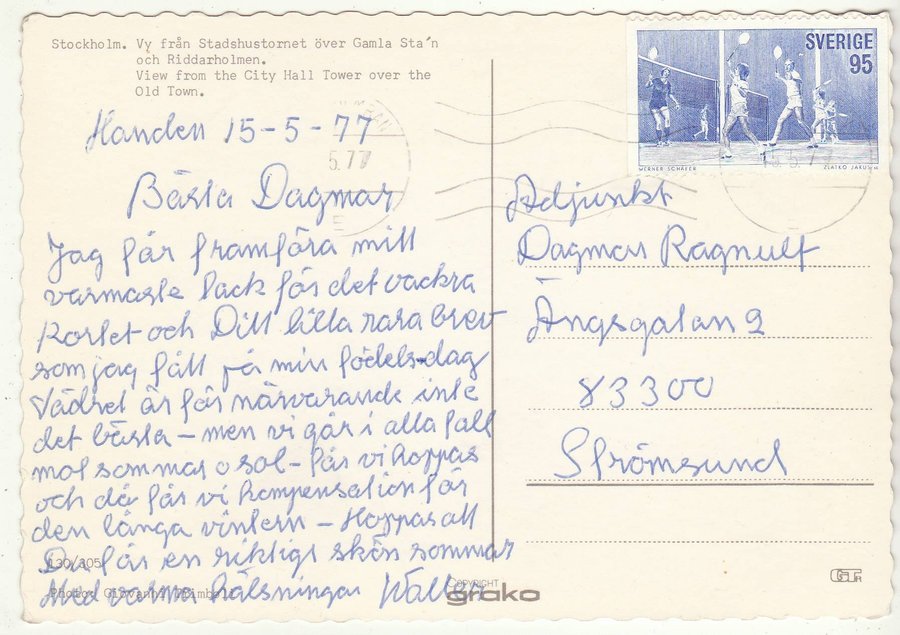 Stockholm. Vy från Stadshustornet över Gamla Sta´n
och Riddarholmen.
View from the City Hall Tower over the
Old Town.
Handen 15-5-77
Bästa Dagmar
Jag får framföra mitt
varmaste tack för det vackra
kortet och Ditt lilla rara brev
som jag fått på min födelsedag
Vädret är för närvarande inte
det bästa – men vi går i alla fall
mot sommar o sol – får vi hoppas
och då får vi kompensation för
den långa vintern – Hoppas att
Du får en riktigt skön sommar
Med varma hälsningar
130/305
Photo: Giovanni Trimboli
COPYRIGHT
grako
SVERIGE
95
WERNER SCHÄFER
ZLATKO JAKUS
5.77
15.5.77
Adjunkt
Dagmar Ragnult
Ängsgatan 2
83300
Strömsund